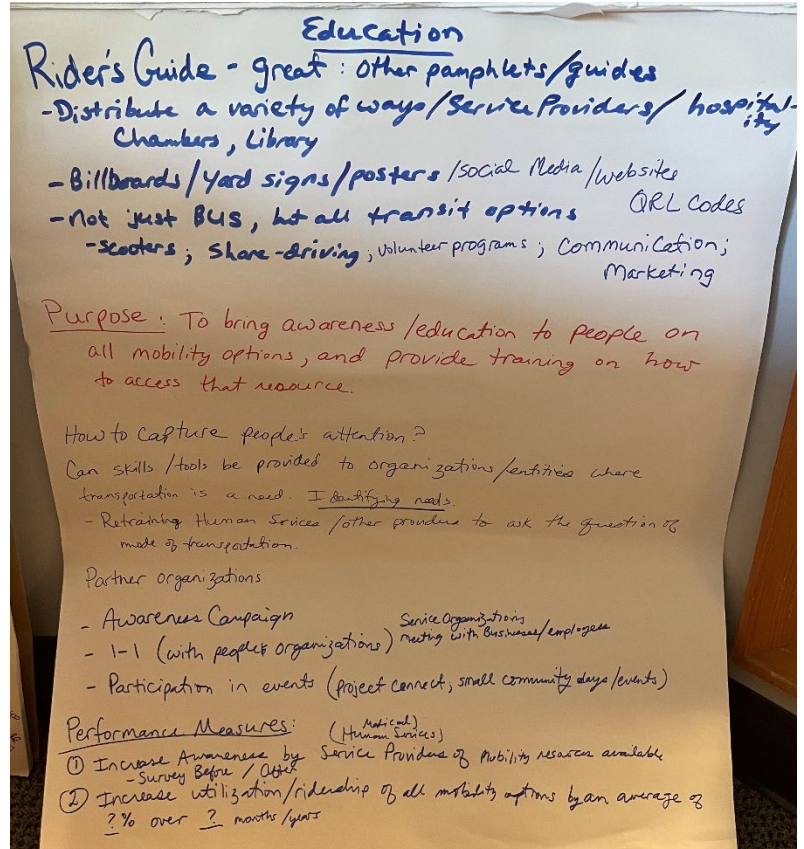 Education
Rider's Guide - great : Other pamphlets/guides
- Distribute a variety of ways/Service Providers/ hospital-
ity
Chambers, Library
- Billboards/Yard signs/posters /social Media/websites
QRL Codes
- Not just BUS, but all transit options
- scooters ; Share-driving ; volunteer programs ; Communication ;
Marketing
Purpose : To bring awareness/education to people on
all mobility options, and provide training on how
to access that resource.
How to capture people's attention?
Can skills/tools be provided to organizations/entities where
transportation is a need. Identifying needs.
- Retraining Human Services /other providers to ask the question of
mode of transportation.
Partner organizations
- Awareness Campaign
Service Organizations
- 1-1 (with people & organizations) meeting with Businesses/employees
- Participation in events (project connect, small community days/events)
Performance Measures:
(Medical)
(Human Services)
① Increase Awareness by Service Providers of mobility resources available
- Survey Before / After
② Increase utilization/ridership of all mobility options by an average of
? % over ? months/years